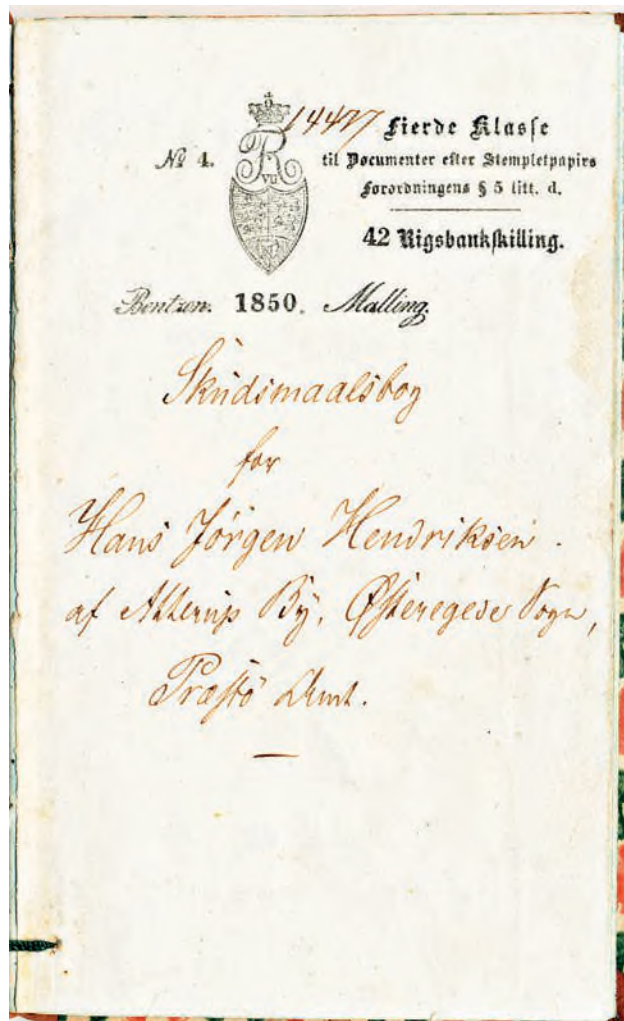 14427
Fierde Klasse
No 4.
til Documenter efter Stempletpapirs
Forordningens § 5 litt. d.
42 Rigsbankskilling.
Bentzen. 1850. Malling.
Skudsmaalsbog
for
Hans Jørgen Hendriksen.
af Atterup By, Østeregede Sogn,
Præstö Amt.